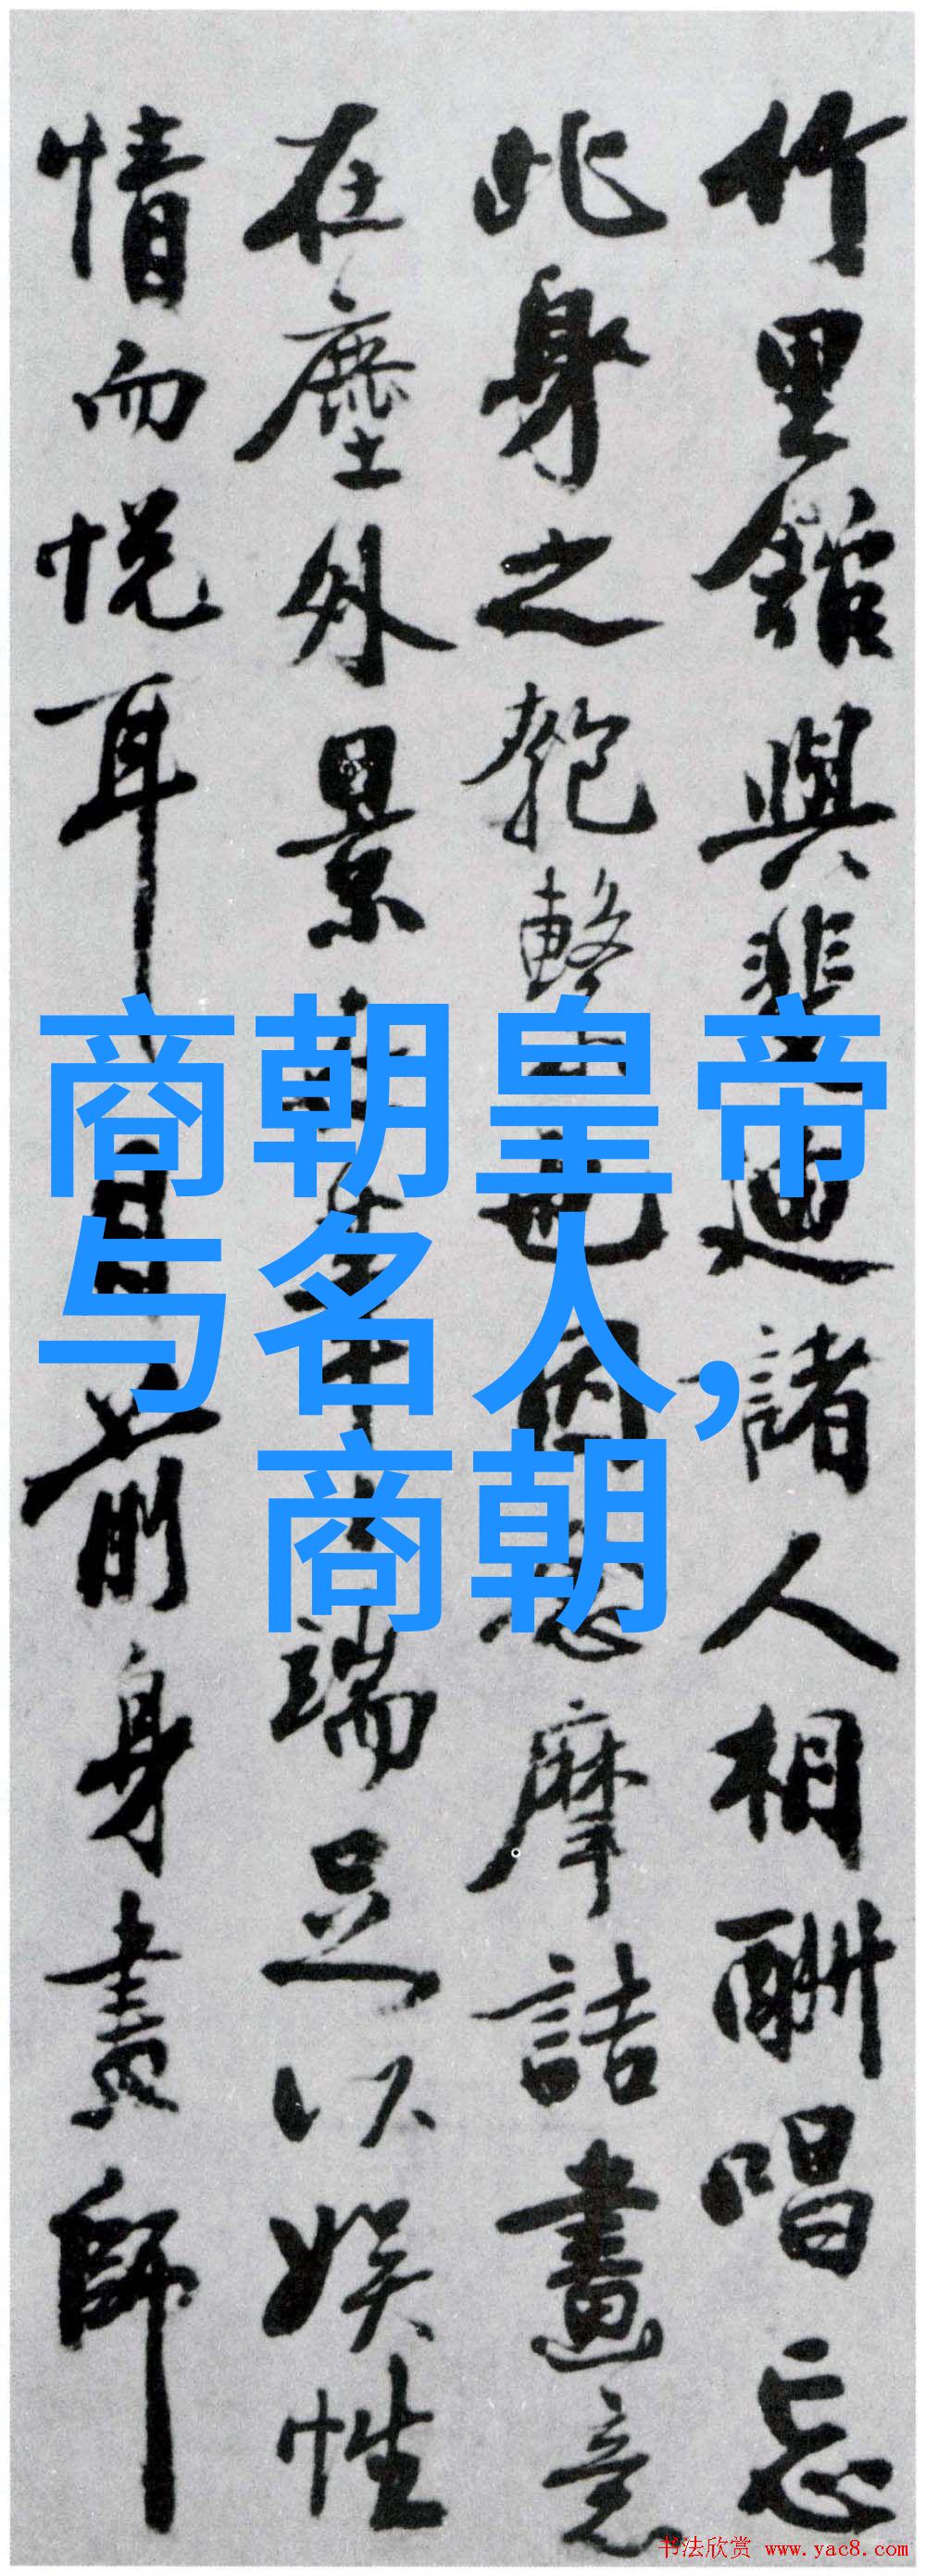 竹里館與裴迪諸人相酬唱忘
此身之匏繫也因思摩詰畫意
在塵外景
端足以娛性
情而悅耳目前身畫師
商朝皇帝
与名人,
商朝
书法欣赏 www.yac8.com